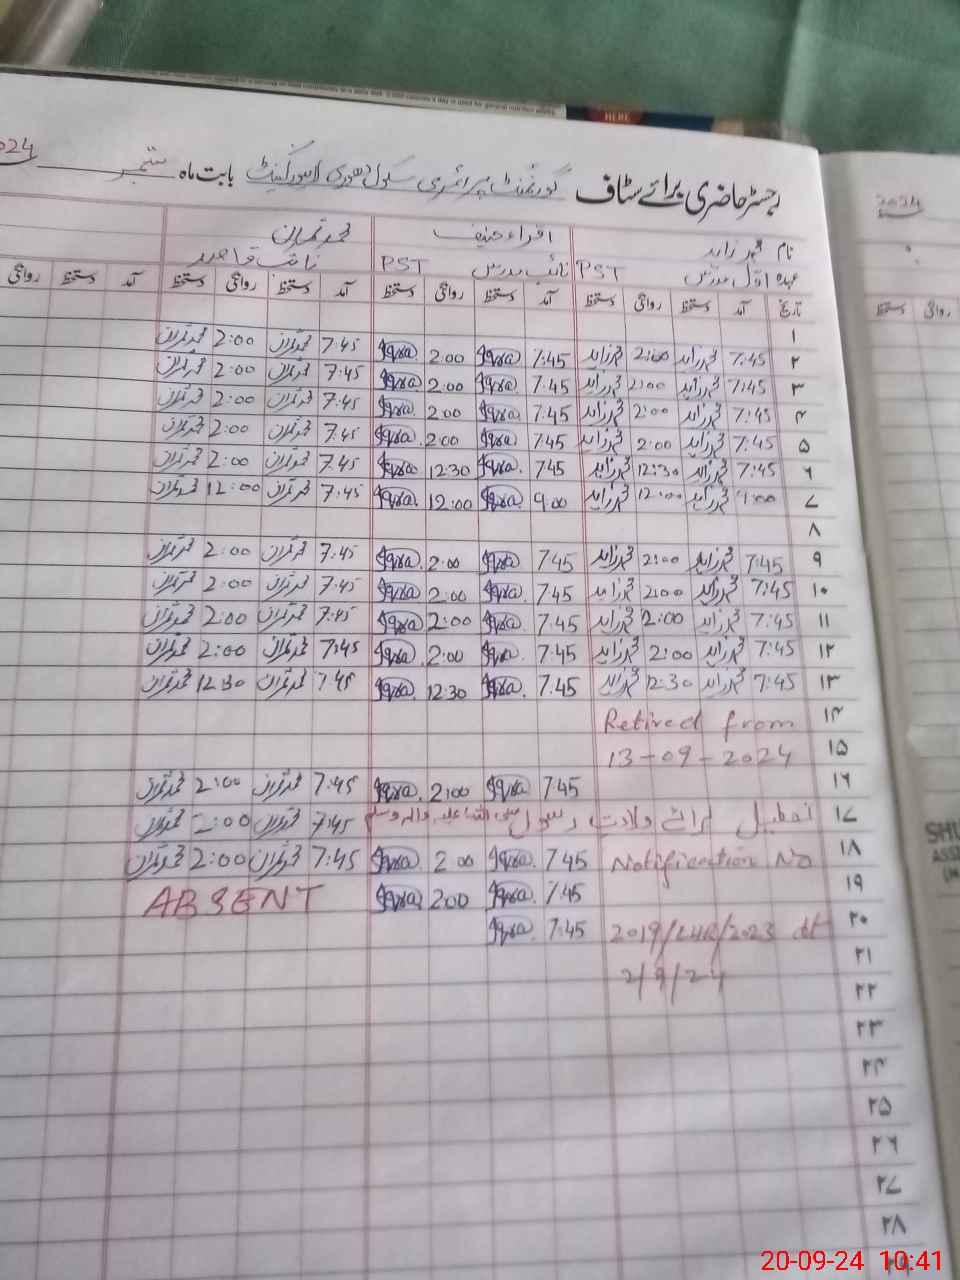 رجسٹر حاضری برائے سٹاف گورنمنٹ پرائمری سکول بابت ماہ ستمبر 2024
نام محمد زاہد اقراء حنیف محمد عمران
عہدہ اول مدرس PST نائب مدرس PST نائب قاصد
تاریخ آمد دستخط روانگی دستخط آمد دستخط روانگی دستخط آمد دستخط روانگی دستخط آمد دستخط روانگی
۱
۲ 7:45 محمد زاہد 2:00 محمد زاہد 7:45 Iqra 2:00 Iqra 7:45 محمد عمران 2:00 محمد عمران
۳ 7:45 محمد زاہد 2:00 محمد زاہد 7:45 Iqra 2:00 Iqra 7:45 محمد عمران 2:00 محمد عمران
۴ 7:45 محمد زاہد 2:00 محمد زاہد 7:45 Iqra 2:00 Iqra 7:45 محمد عمران 2:00 محمد عمران
۵ 7:45 محمد زاہد 2:00 محمد زاہد 7:45 Iqra. 2:00 Iqra. 7:45 محمد عمران 2:00 محمد عمران
۶ 7:45 محمد زاہد 12:30 محمد زاہد 745 Iqra. 12:30 Iqra 7:45 محمد عمران 2:00 محمد عمران
۷ 9:00 محمد زاہد 12:00 محمد زاہد 9:00 Iqra. 12:00 Iqra. 7:45 محمد عمران 12:00 محمد عمران
۸
۹ 7:45 محمد زاہد 2:00 محمد زاہد 745 Iqra. 2:00 Iqra. 7:45 محمد عمران 2:00 محمد عمران
۱۰ 7:45 محمد زاہد 2:00 محمد زاہد 7:45 Iqra. 2:00 Iqra. 7:45 محمد عمران 2:00 محمد عمران
۱۱ 7:45 محمد زاہد 2:00 محمد زاہد 7.45 Iqra. 2:00 Iqra 7:45 محمد عمران 2:00 محمد عمران
۱۲ 7:45 محمد زاہد 2:00 محمد زاہد 7:45 Iqra. 2:00 Iqra. 7:45 محمد عمران 2:00 محمد عمران
۱۳ 7:45 محمد زاہد 12:30 محمد زاہد 7.45 Iqra. 12:30 Iqra. 7:45 محمد عمران 12:30 محمد عمران
۱۴ Retired from
۱۵ 13-09-2024
۱۶ 7:45 Iqra 2:00 Iqra. 7:45 محمد عمران 2:00 محمد عمران
۱۷ تعطیل برائے ولادت رسول صلی اللہ علیہ والہ وسلم 7:45 محمد عمران 2:00 محمد عمران
۱۸ Notification No 745 Iqra. 2 00 Iqra. 7:45 محمد عمران 2:00 محمد عمران
۱۹ 7:45 Iqra. 2:00 Iqra. ABSENT
۲۰ 2019/LHR/2023 dt 7:45 Iqra.
۲۱ 2/9/24
۲۲
۲۳
۲۴
۲۵
۲۶
۲۷
۲۸
۲۹
2024
دستخط روانگی
HERE
SHU
ASS
20-09-24 10:41